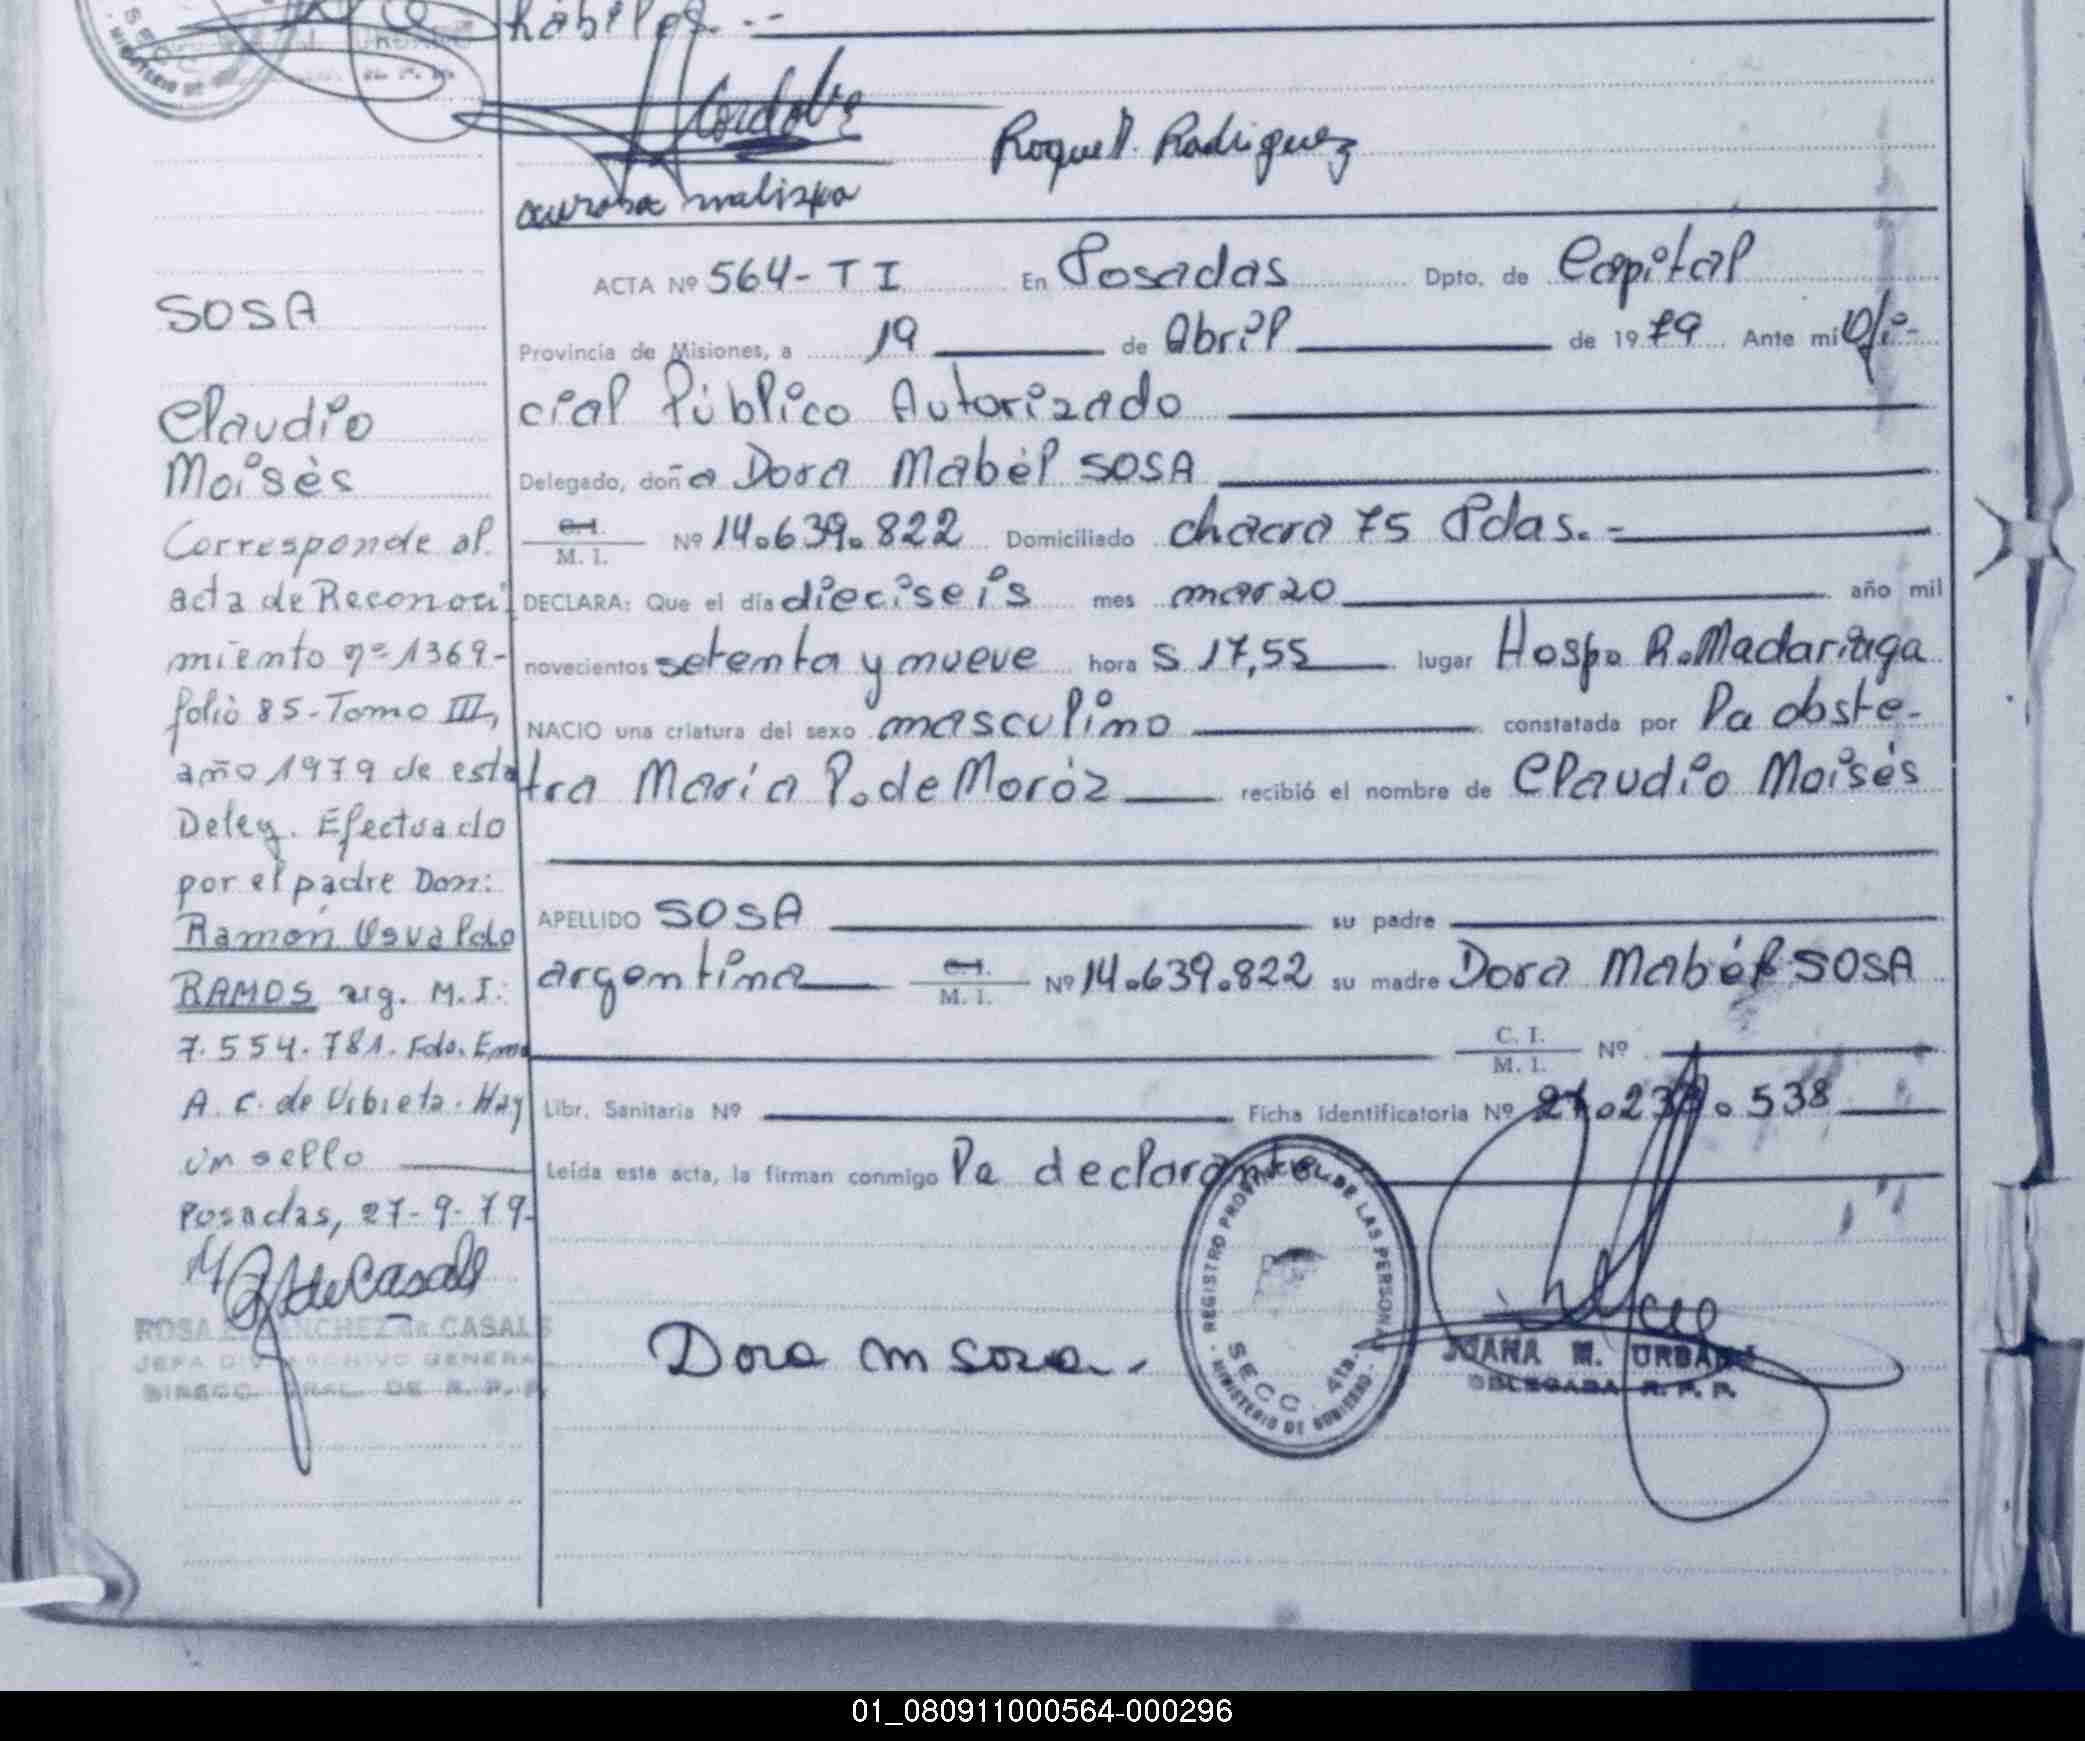 hábiles.--
Cordoba
Roque R. Rodriguez
aurora malispa
ACTA Nº 564-T I En Posadas Dpto. de Capital
Provincia de Misiones, a 19 de Abril de 1979 Ante mi Ofi-
cial Público Autorizado
Delegado, doña Dora Mabél SOSA
C.I.
M. I. Nº 14.639.822 Domiciliado chacra 75 Pdas.-
DECLARA: Que el día dieciseis mes marzo año mil
novecientos setenta y nueve hora s 17,55 lugar Hosp. R. Madariaga
NACIO una criatura del sexo masculino constatada por la obste-
tra María P. de Moróz recibió el nombre de Claudio Moisés
APELLIDO SOSA su padre
argentina C.I.
M. I. Nº 14.639.822 su madre Dora Mabél SOSA
C. I.
M. I. Nº
Libr. Sanitaria Nº Ficha Identificatoria Nº 27.239.538
Leída este acta, la firman conmigo la declarante.
Dora M Sosa.
REGISTRO PROVINCIAL DE LAS PERSONAS
SECC. 4ta.
MINISTERIO DE GOBIERNO
JUANA M. URBANO
DELEGADA R. P. P.
SOSA
Claudio
Moisès
Corresponde al
acta de Reconoci
miento nº 1369-
folio 85-Tomo III,
año 1979 de esta
Deleg. Efectuado
por el padre Don:
Ramón Usvaldo
RAMOS arg. M.I:
7.554.781. Fdo. Ema
A. C. de Urbieta. Hay
un sello
Posadas, 27-9-79-
de Casals
ROSA SANCHEZ de CASALS
JEFA DIV. ARCHIVO GENERAL
DIRECC. GRAL. DE R. P. P.
01_080911000564-000296